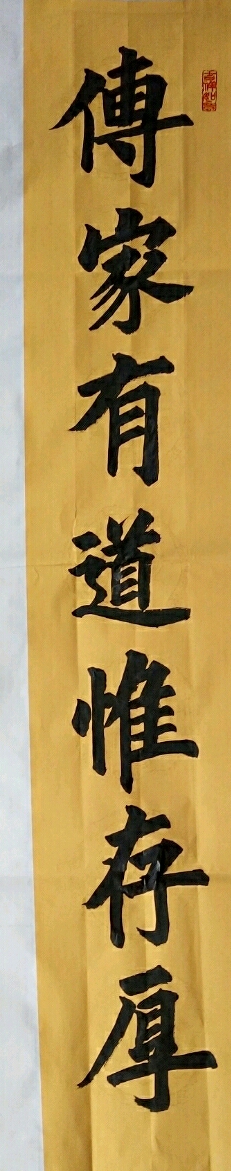 傳家有道惟存厚